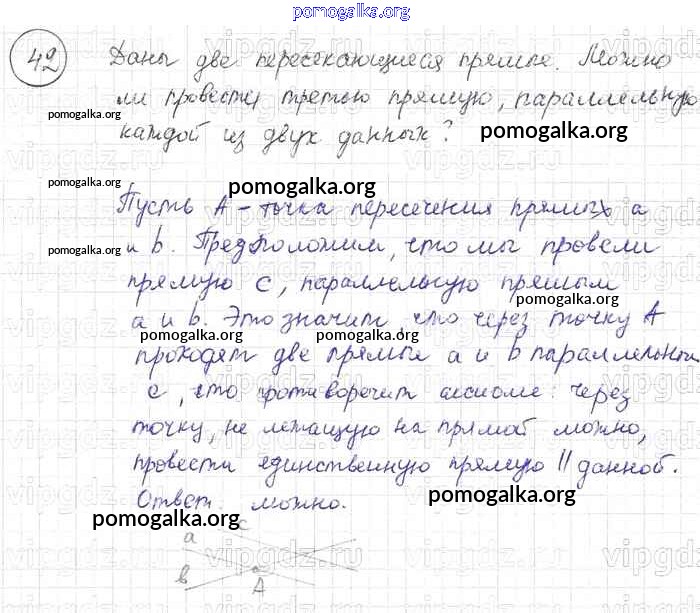 pomogalka.org
42 Даны две пересекающиеся прямые. Можно
pomogalka.org
ли провести третью прямую, параллельную
pomogalka.org
каждой из двух данных? pomogalka.org
pomogalka.org pomogalka.org
Пусть А – точка пересечения прямых а
и b. Предположим, что мы провели
pomogalka.org
прямую с, параллельную прямым
pomogalka.org
а и b. Это значит, что через точку А
pomogalka.org pomogalka.org
проходят две прямые а и b параллельные
с, что противоречит аксиоме: через
pomogalka.org
точку, не лежащую на прямой можно,
провести единственную прямую || данной.
pomogalka.org
Ответ: можно.
pomogalka.org
с
а
pomogalka.org
в
А
vipgdz.ru